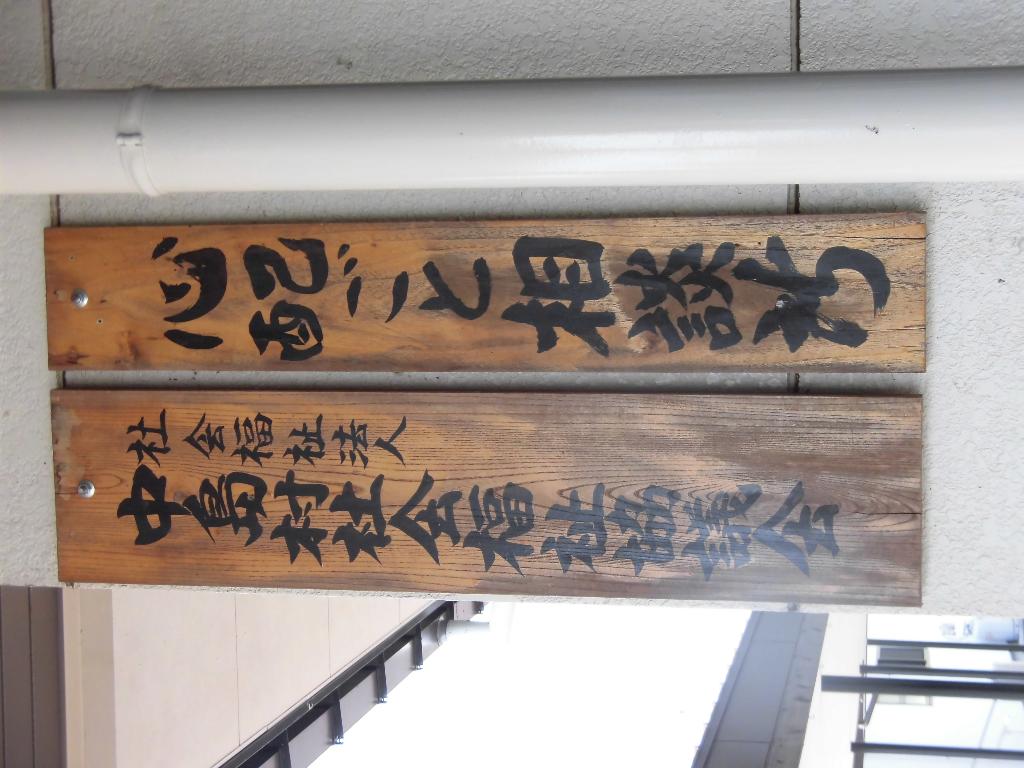 社会福祉法人
中島村社会福祉協議会
心配ごと相談所